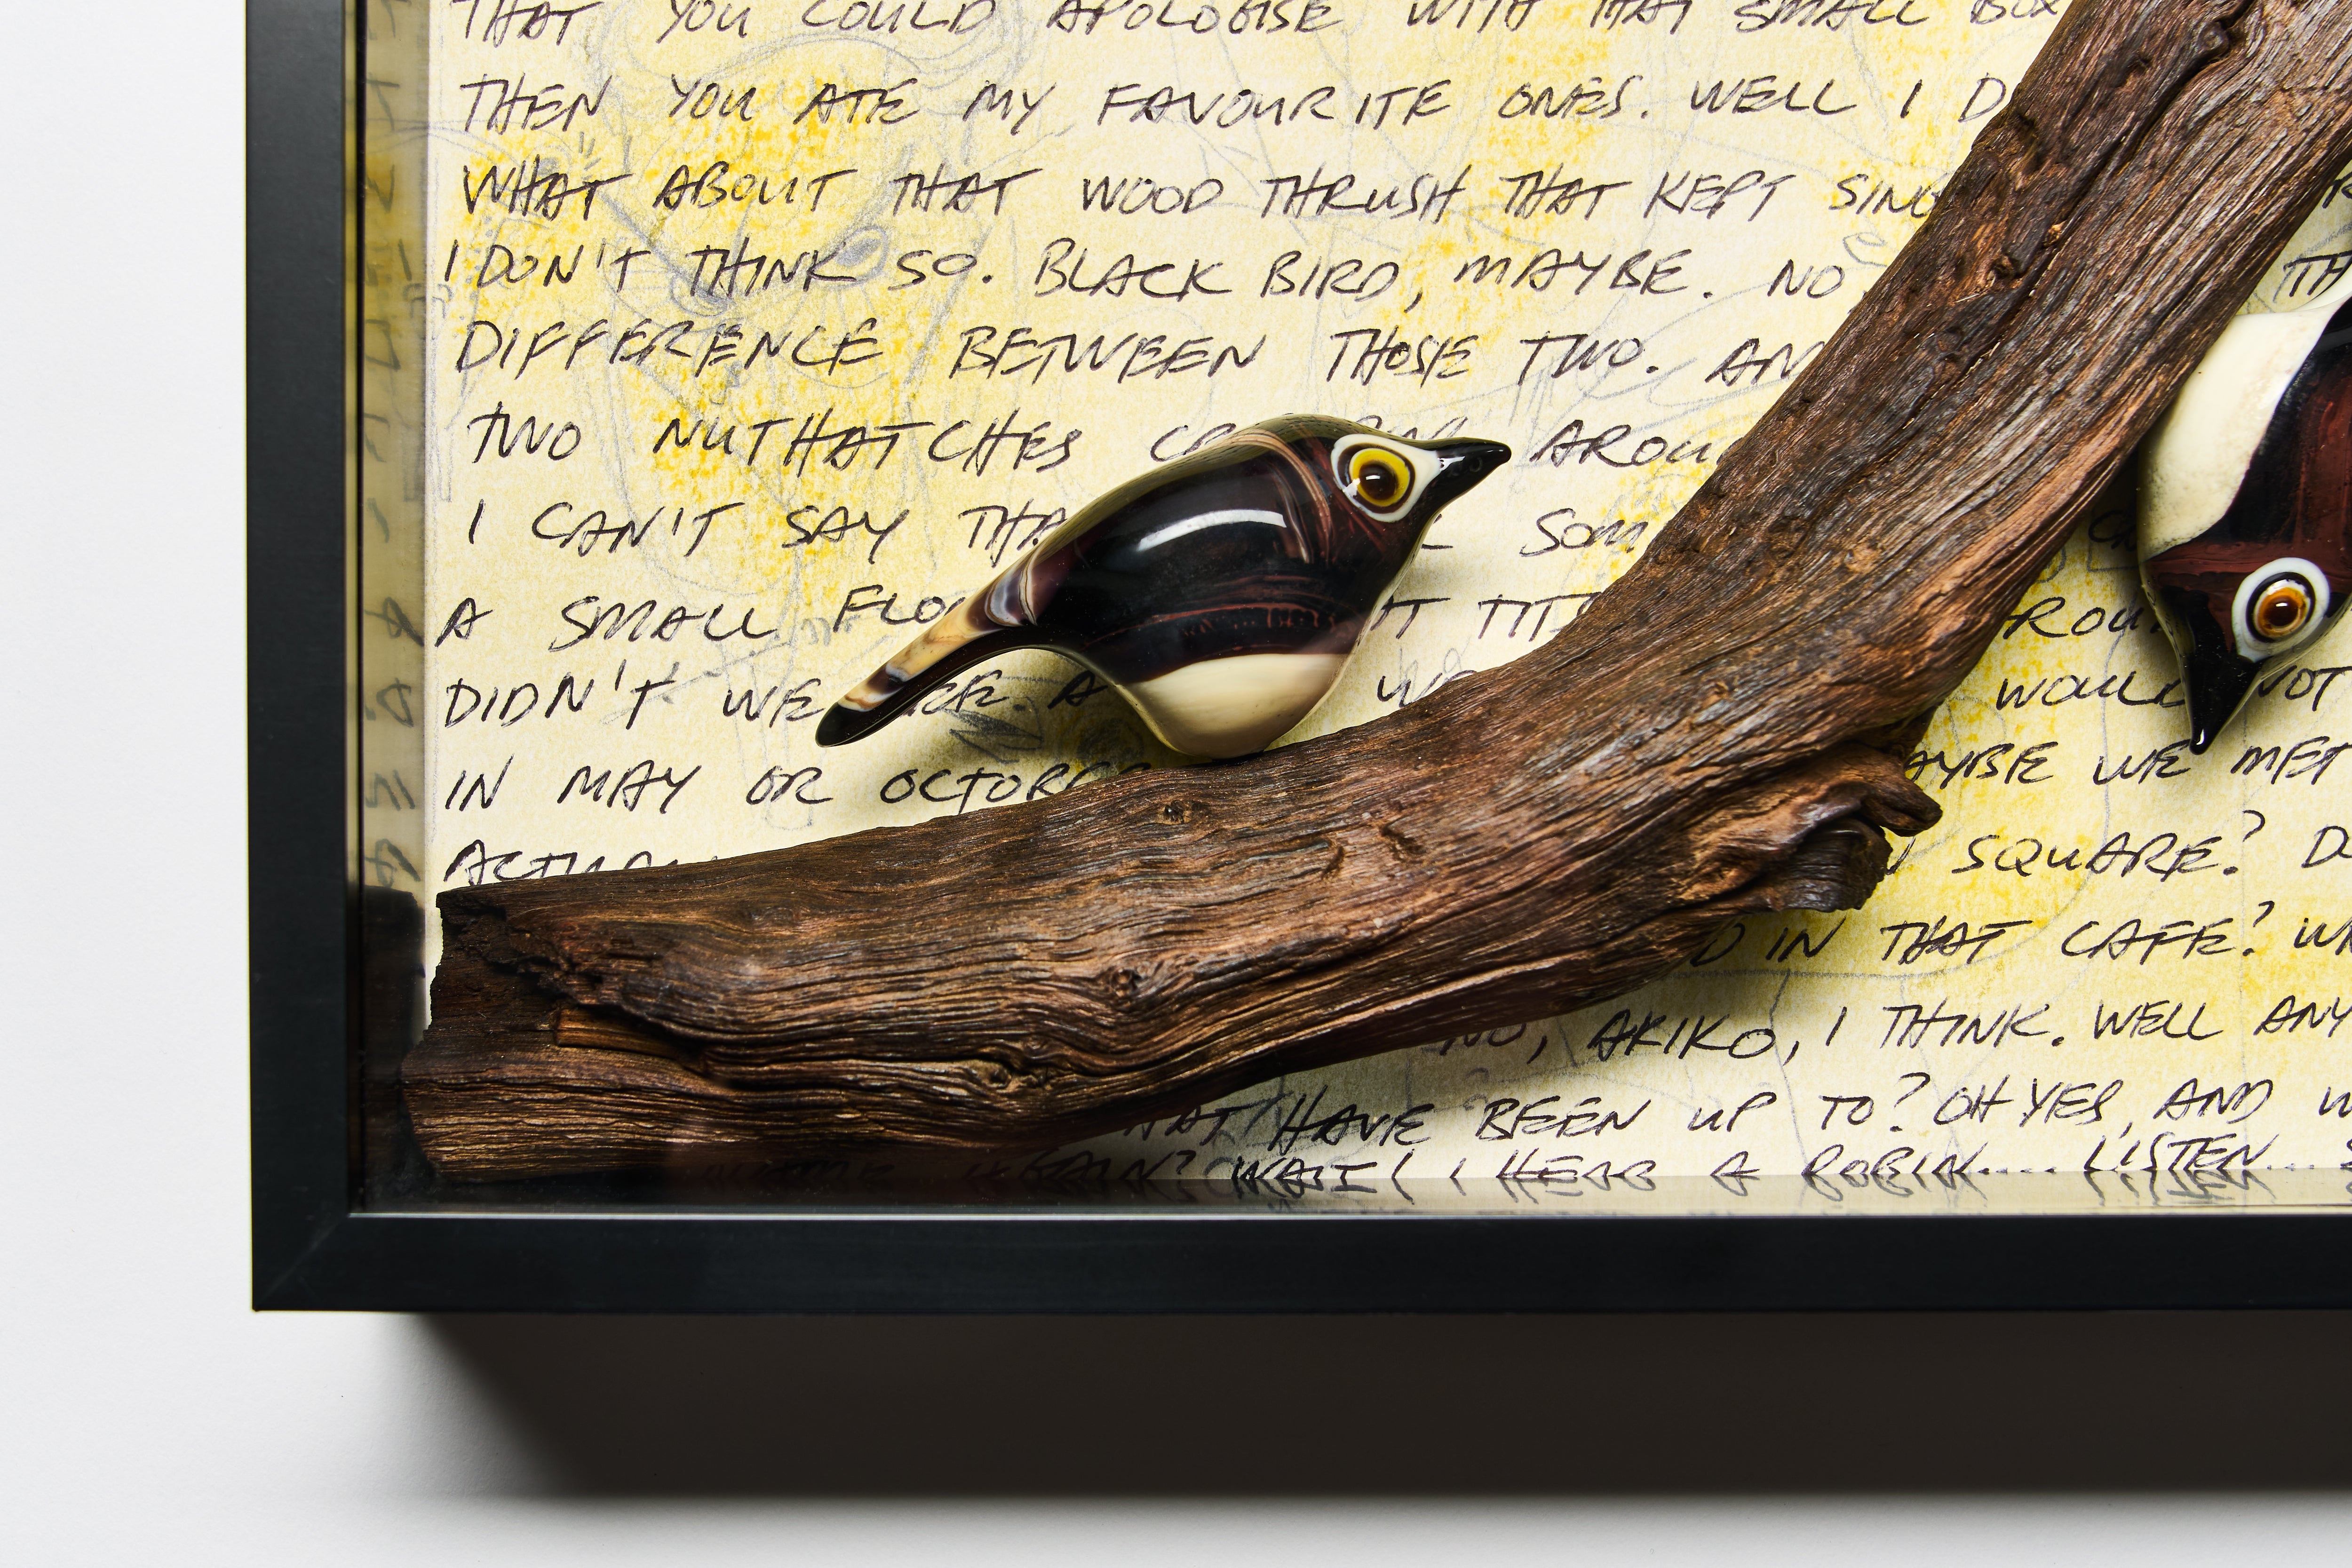 THAT YOU COULD APOLOGISE WITH THAT SMALL BOX
THEN YOU ATE MY FAVOURITE ONES. WELL I D
WHAT ABOUT THAT WOOD THRUSH THAT KEPT SING
I DON'T THINK SO. BLACK BIRD, MAYBE. NO TH
DIFFERENCE BETWEEN THOSE TWO. AN
TWO NUTHATCHES AROU
I CAN'T SAY THA SOM
A SMALL FLO TIT ROU
DIDN'T WE A WOULD NOT
IN MAY OR OCTOBER MAYBE WE MET
ACTUALLY SQUARE? D
IN THAT CAFE? W
NO, AKIKO, I THINK. WELL ANY
THAT HAVE BEEN UP TO? OH YES, AND W
AGAIN? WAIT! I HEAR A ROBIN.... LISTEN... S